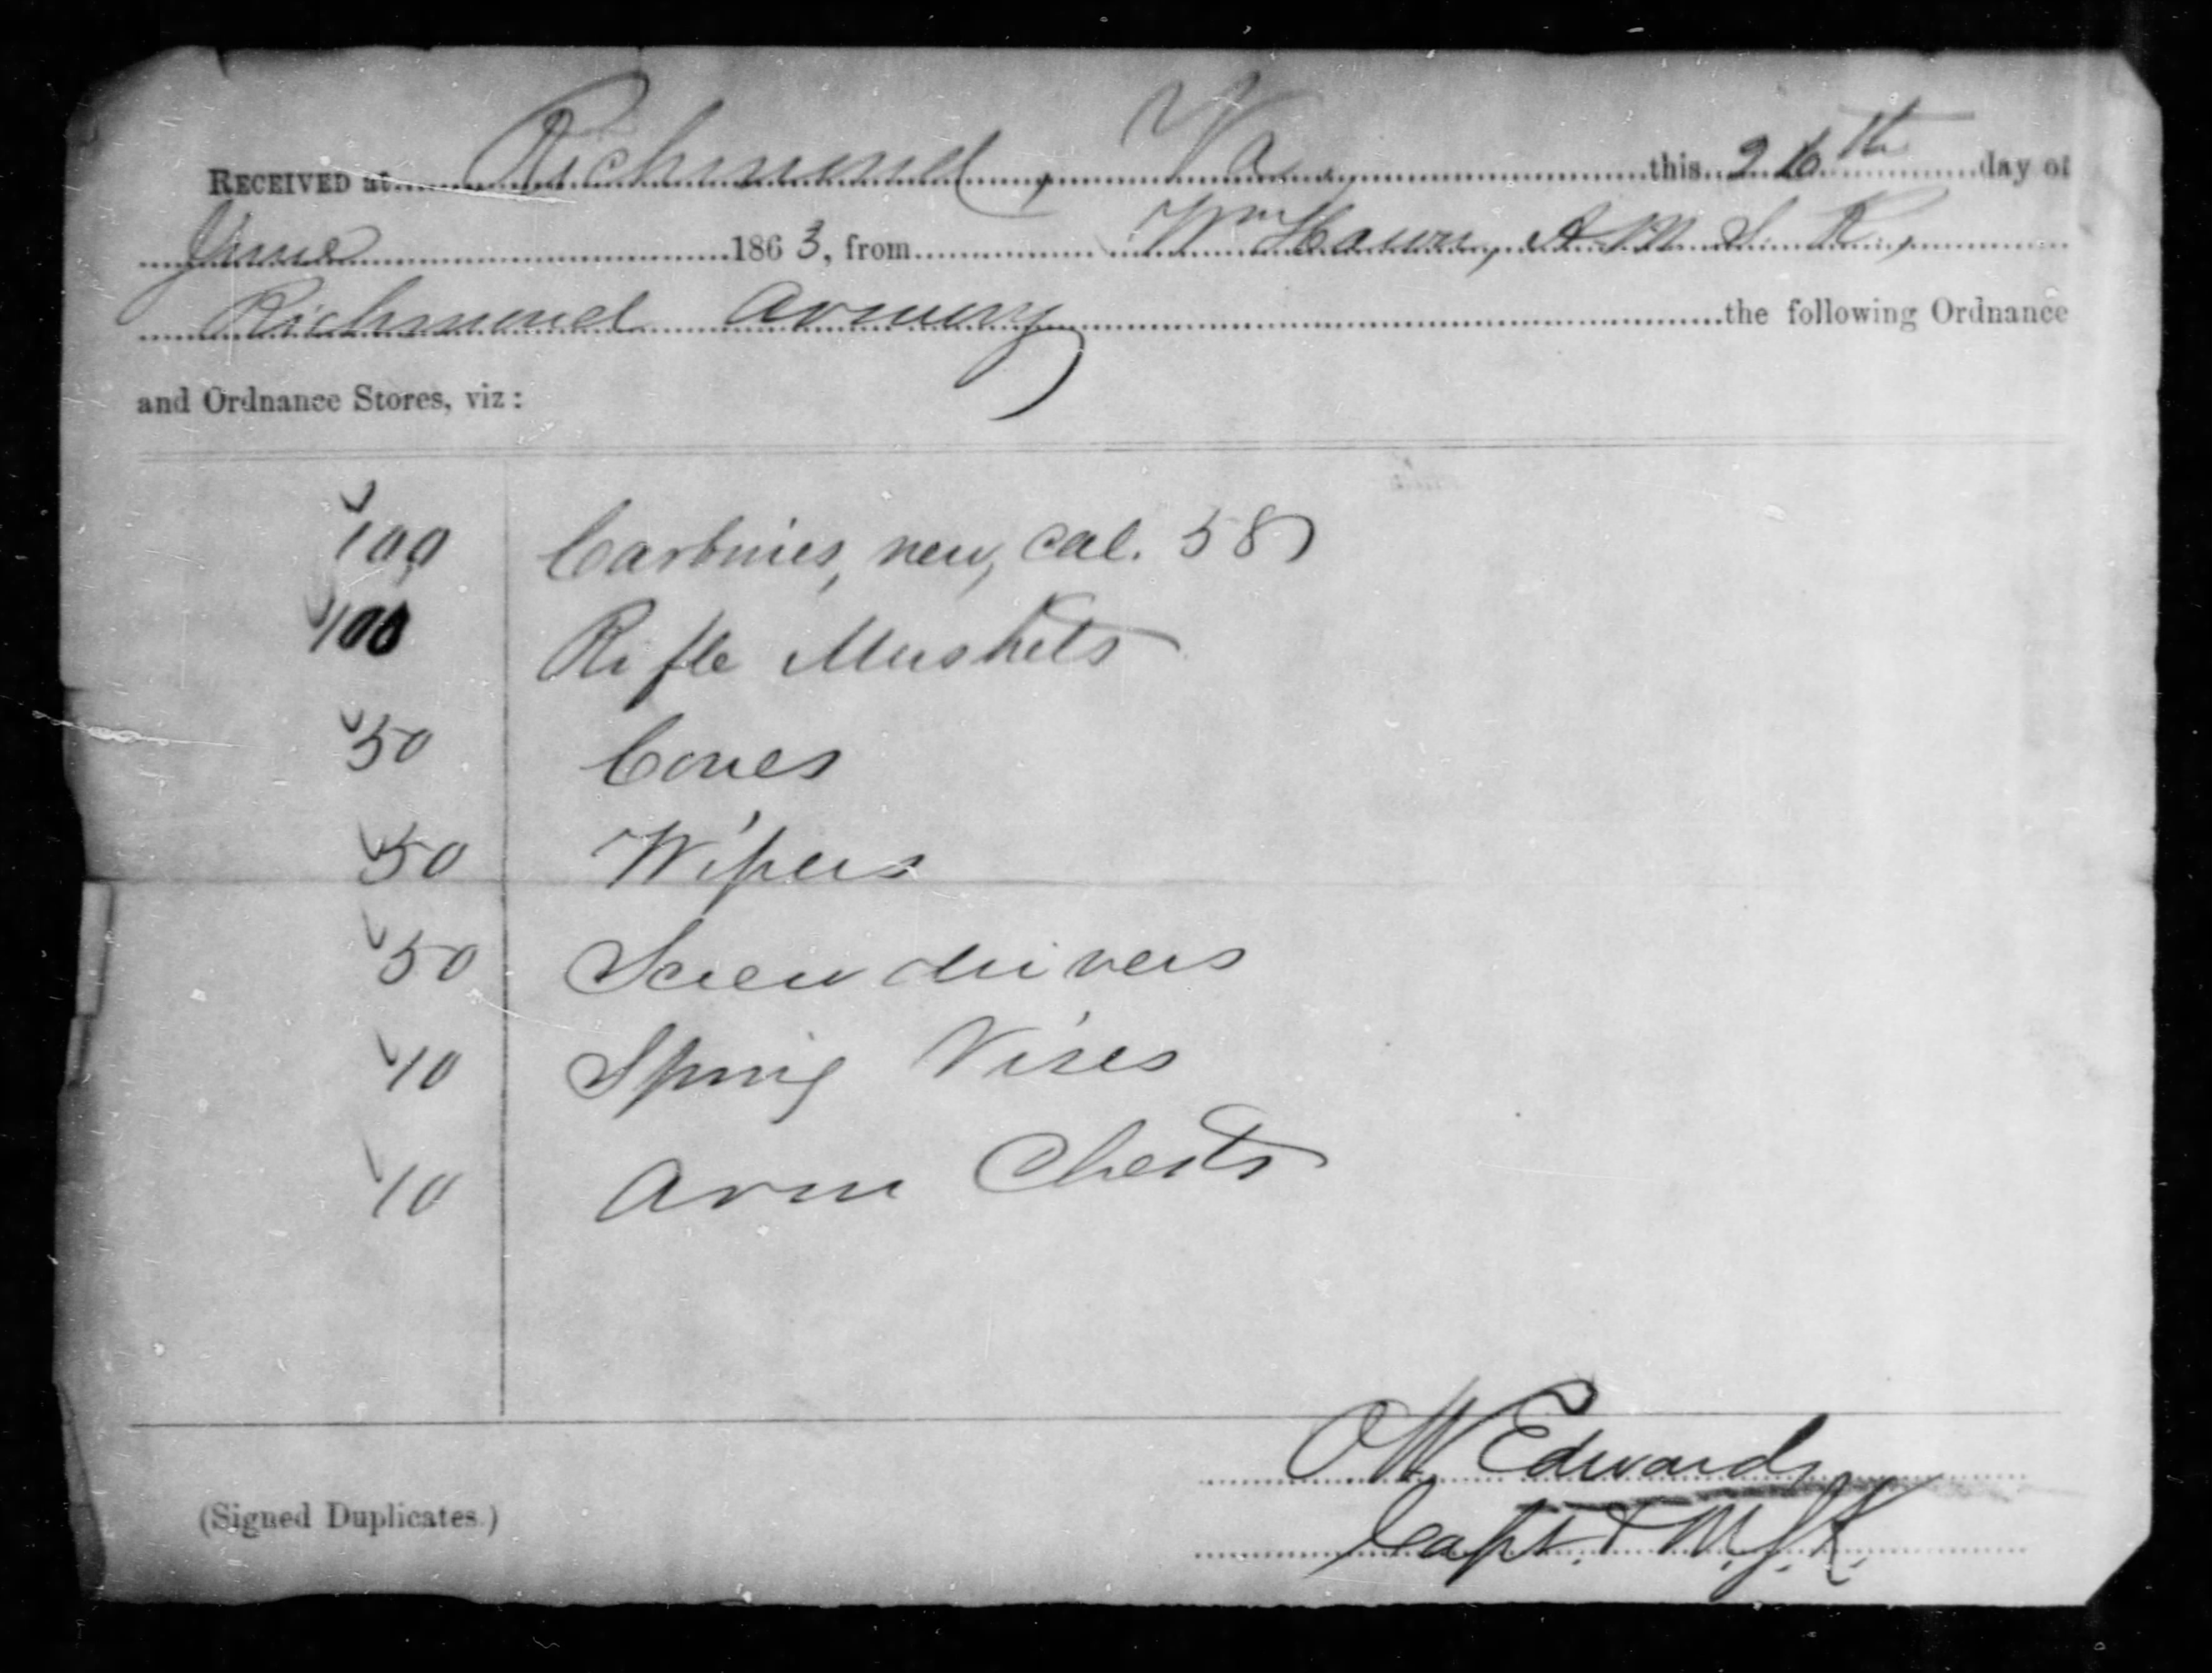 RECEIVED at Richmond, Va, this 26th day of
June 1863, from Wm Hawn, A M S K,
Richmond Armory the following Ordnance
and Ordnance Stores, viz:
100 Carbines, new, cal. 58
100 Rifle Muskets
50 Cones
50 Wipers
50 Screw drivers
10 Spring Vises
10 Arm Chests
O W Edwards
(Signed Duplicates.) Capt. & M. S. K.